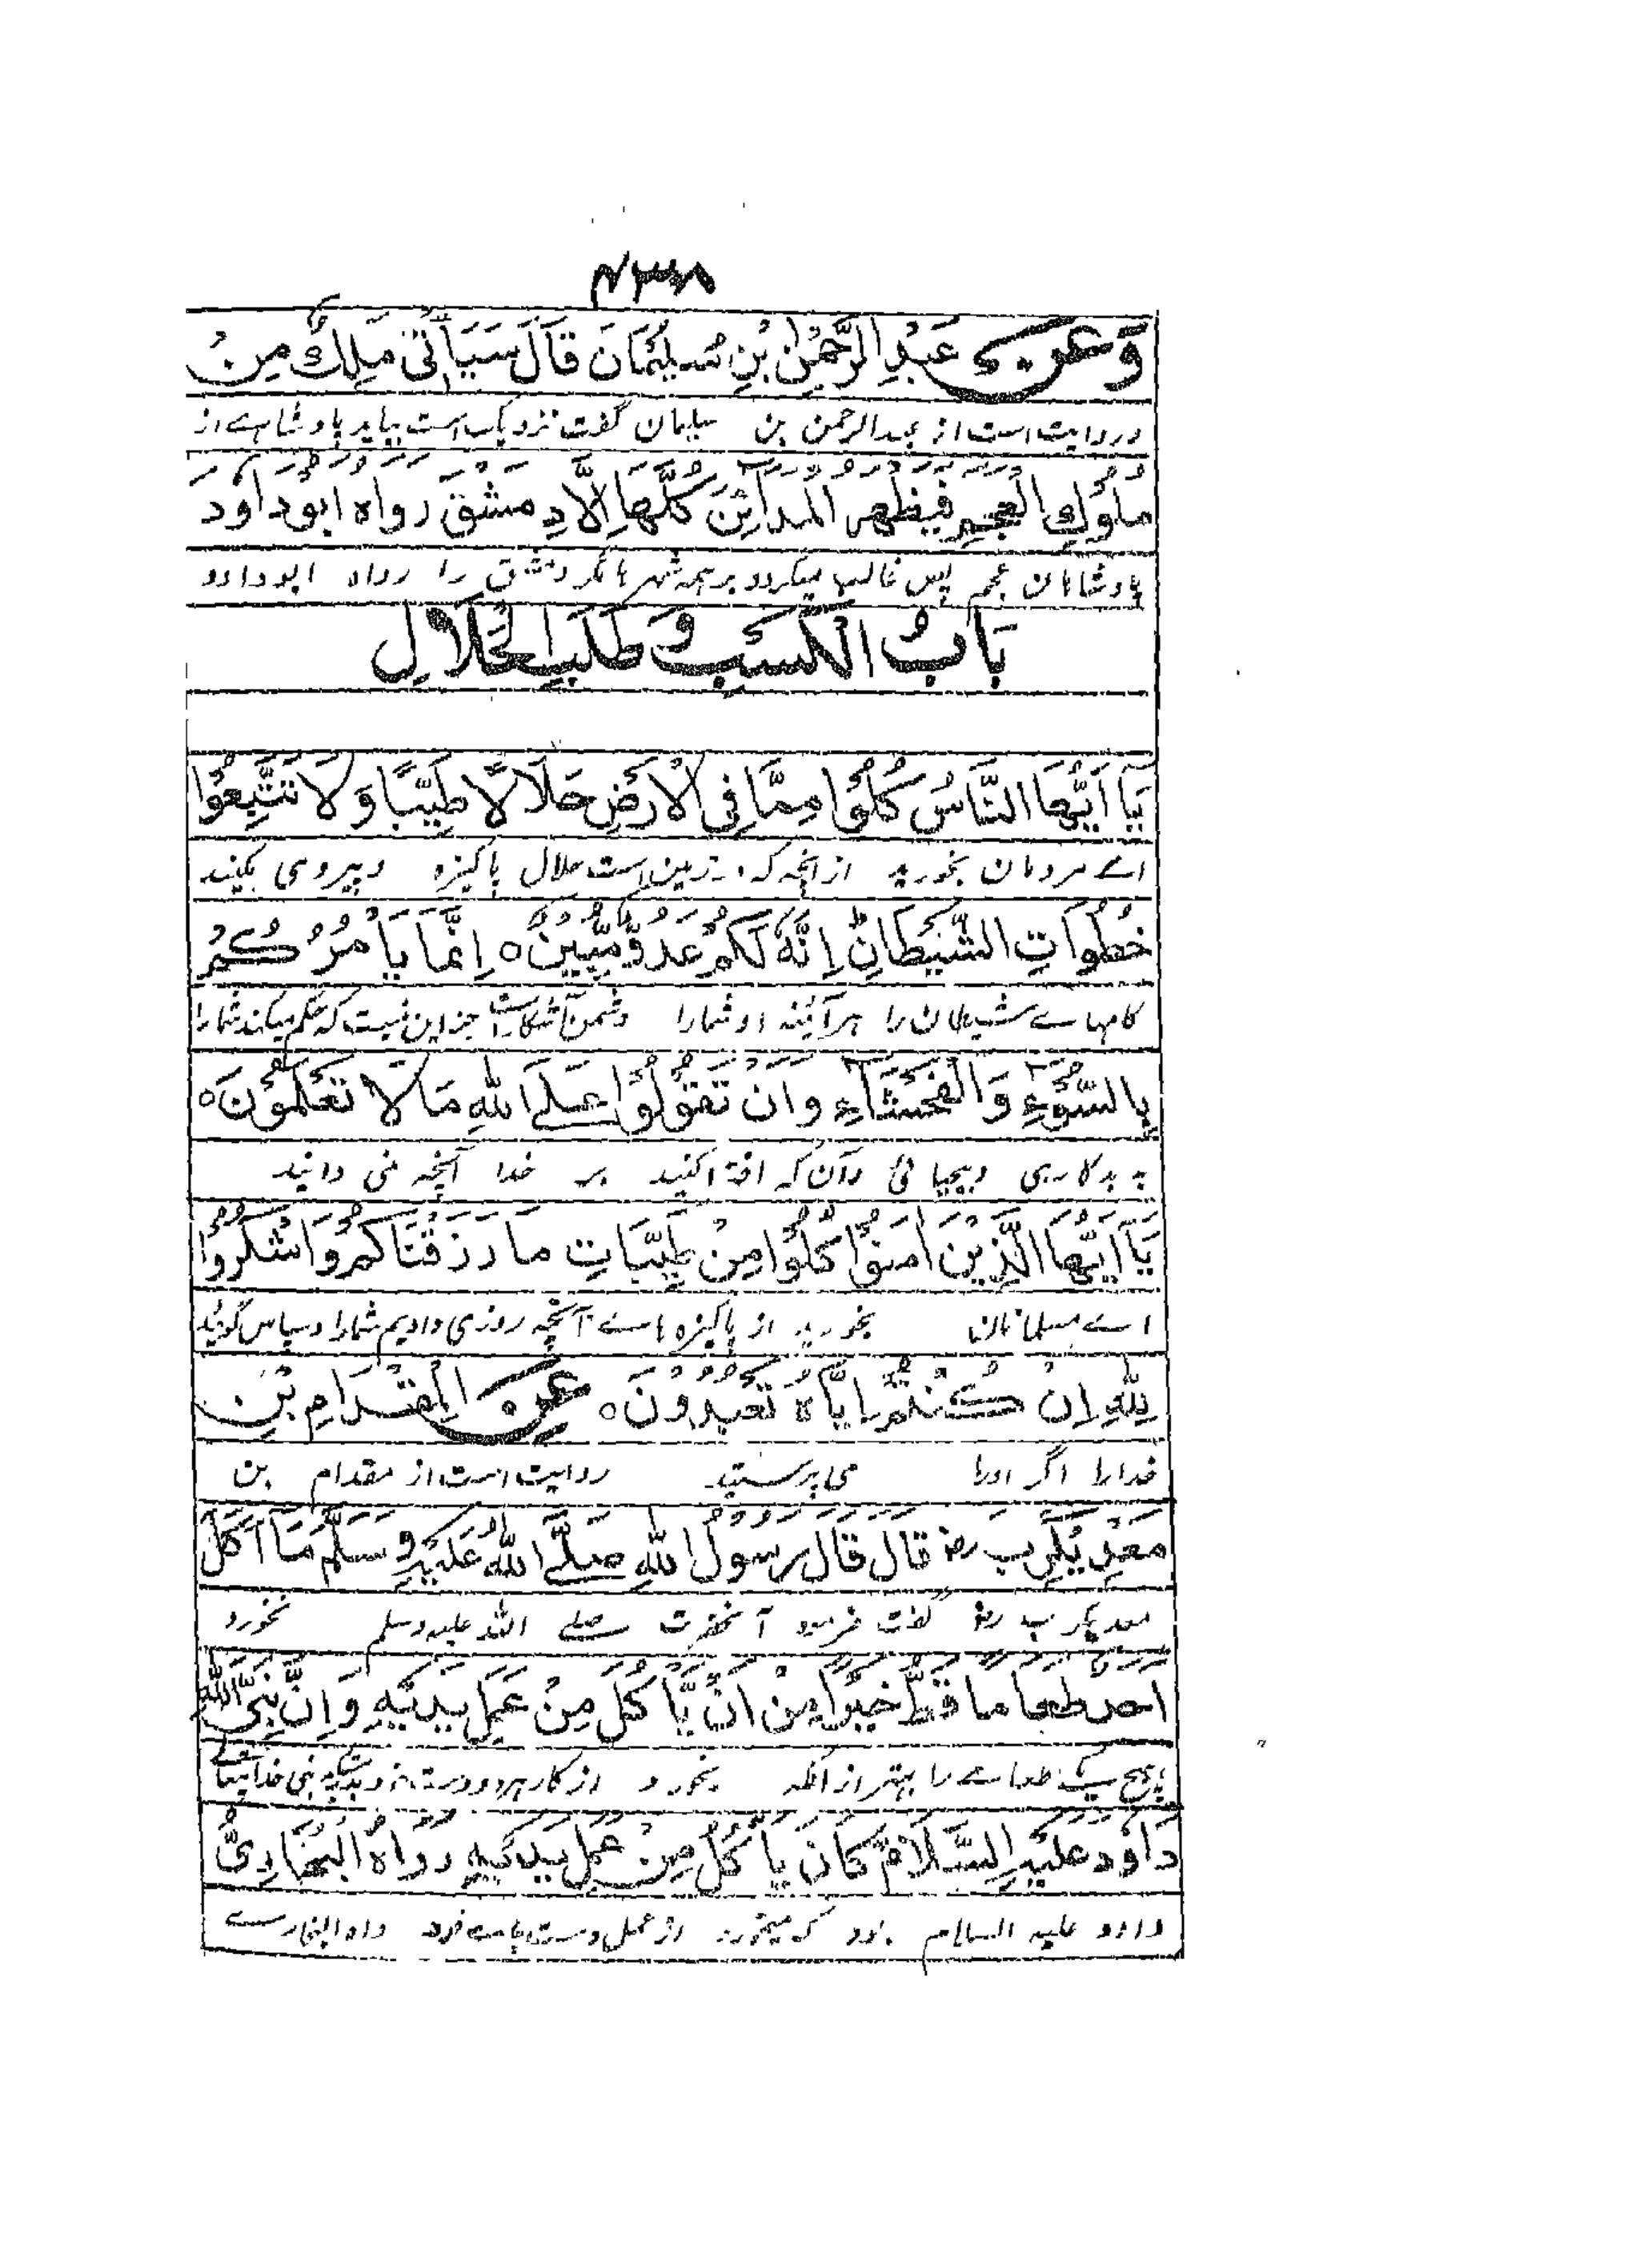 ۴۳۸
وَعَنْ عَبْدِ الرَّحْمٰنِ بْنِ سُلَيْمَانَ قَالَ سَيَأْتِيْ مَلِكٌ مِنْ
وروایت است از عبدالرحمن بن سلیمان گفت نزدیک است بیاید بادشاہے از
مُلُوْكِ الْعَجَمِ فَيَظْهَرُ الْمَدَآئِنَ كُلَّهَا اِلَّا دِمَشْقَ رواه ابُوْ دَاوٗدَ
بادشاہان عجم پس غالب میگردد بر ہمہ شہر ہا مگر دمشق را رواہ ابوداود
بَابُ الْكَسَبِ وَطَلَبِ الْحَلَالِ
يَآ اَيُّهَا النَّاسُ كُلُوْا مِمَّا فِى الْاَرْضِ حَلَالًا طَيِّبًا وَلَا تَتَّبِعُوْا
اے مردمان بخورید از انچہ کہ در زمین است حلال پاکیزہ وپیروی مکنید
خُطُوَاتِ الشَّيْطَانِ اِنَّهٗ لَكُمْ عَدُوٌّ مُّبِيْنٌ ○ اِنَّمَا يَأْمُرُكُمْ
گامہاے شیطان را ہر آئینہ او شمارا دشمن آشکار است جز این نیست کہ حکم میکند شمارا
بِالسُّوْٓءِ وَالْفَحْشَآءِ وَاَنْ تَقُوْلُوْا عَلَى اللّٰهِ مَا لَا تَعْلَمُوْنَ ○
بہ بدکاری وبیحیائی وآن کہ افترا کنید بر خدا آنچہ نمی دانید
يَآ اَيُّهَا الَّذِيْنَ اٰمَنُوْا كُلُوْا مِنْ طَيِّبَاتِ مَا رَزَقْنَاكُمْ وَاشْكُرُوْا
اے مسلمانان بخورید از پاکیزہ ہاے آنچہ روزی دادیم شمارا وسپاس گوئید
لِلّٰهِ اِنْ كُنْتُمْ اِيَّاهُ تَعْبُدُوْنَ ○ عَنِ الْمِقْدَامِ بْنِ
خدارا اگر اورا می پرستید روایت است از مقدام بن
مَعْدِيْكَرِبَ رضـ قَالَ قَالَ رَسُوْلُ اللّٰهِ صَلَّى اللّٰهُ عَلَيْهِ وَسَلَّمَ مَا اَكَلَ
معدیکرب رضـ گفت فرمود آنحضرت صلے اللہ علیہ وسلم نخورد
احد طعاما قَطُّ خَيْرًا مِنْ اَنْ يَّأْكُلَ مِنْ عَمَلِ يَدَيْهِ وَاِنَّ نَبِيَّ اللّٰهِ
ہیچ یکے طعامے را بہتر از انکہ بخورد از کار ہر دو دست خود بتحقیق نبی خدایتعالے
دَاوٗدَ عَلَيْهِ السَّلَامُ كَانَ يَأْكُلُ مِنْ عَمَلِ يَدَيْهِ رَوَاهُ الْبُخَارِيُّ
داود علیہ السلام بود کہ میخورد از عمل دست ہاے خود رواہ البخارے